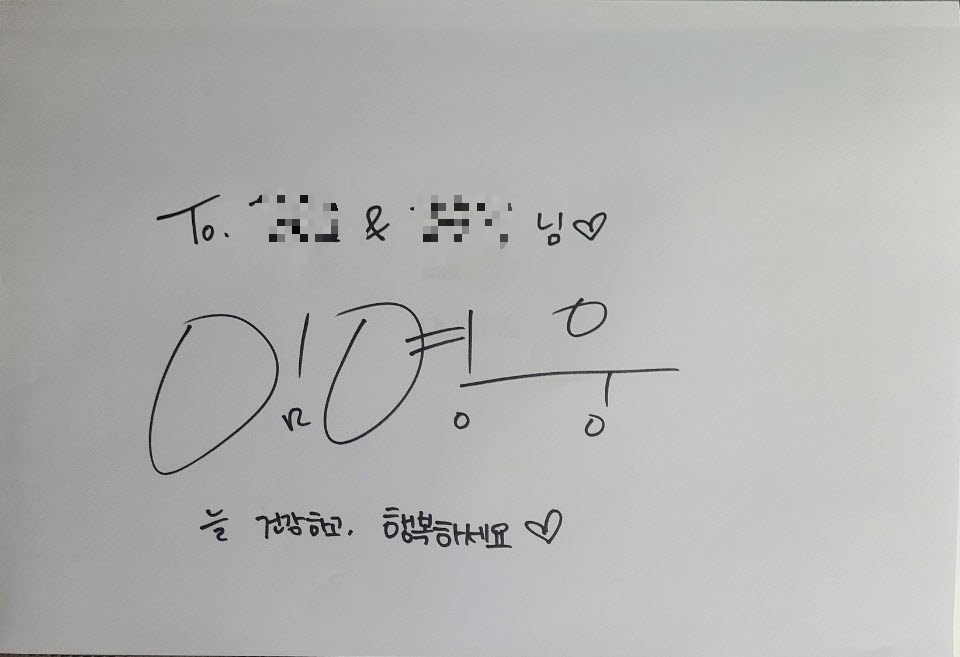 To. & 님♡
임영웅
늘 건강하고, 행복하세요♡